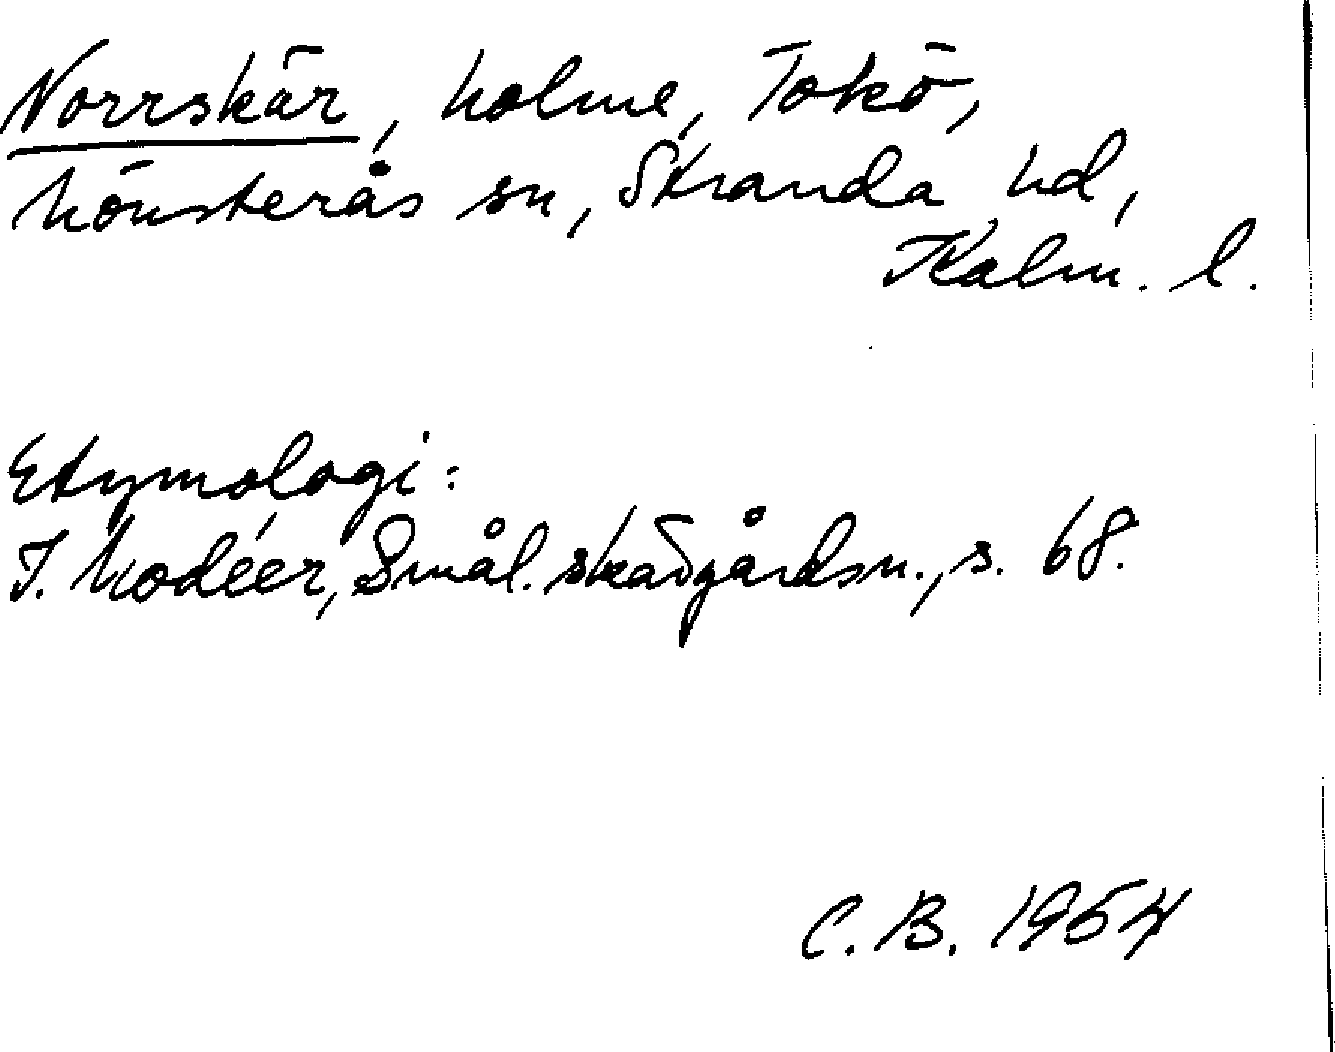 Norrskär, holme, Tokö,
Mönsterås sn, Stranda hd,
Kalm. l.
Etymologi:
I. Modéer, Smål. skärgårdsn., s. 68.
C. B. 1954